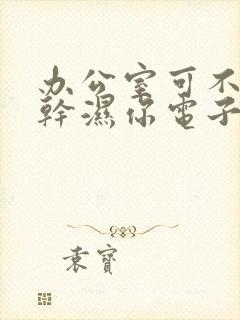 办公室可不
幹濕你電子
袁寶